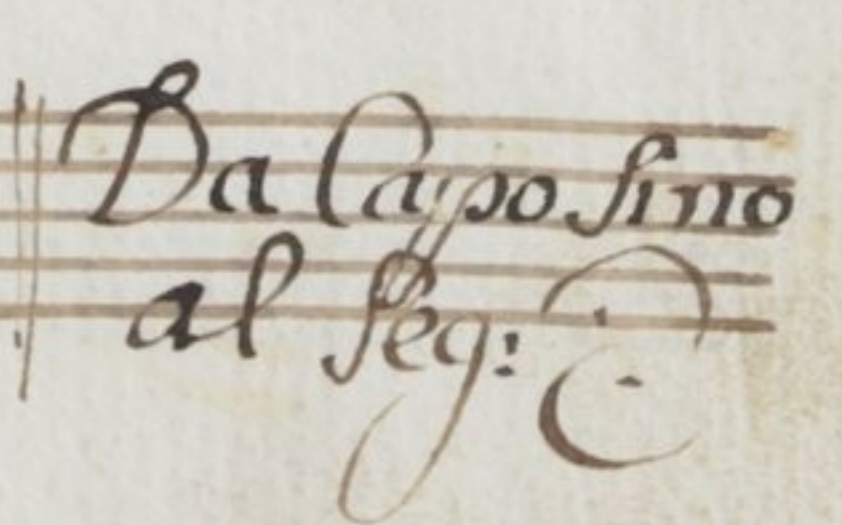 Da Capo sino
al Seg: